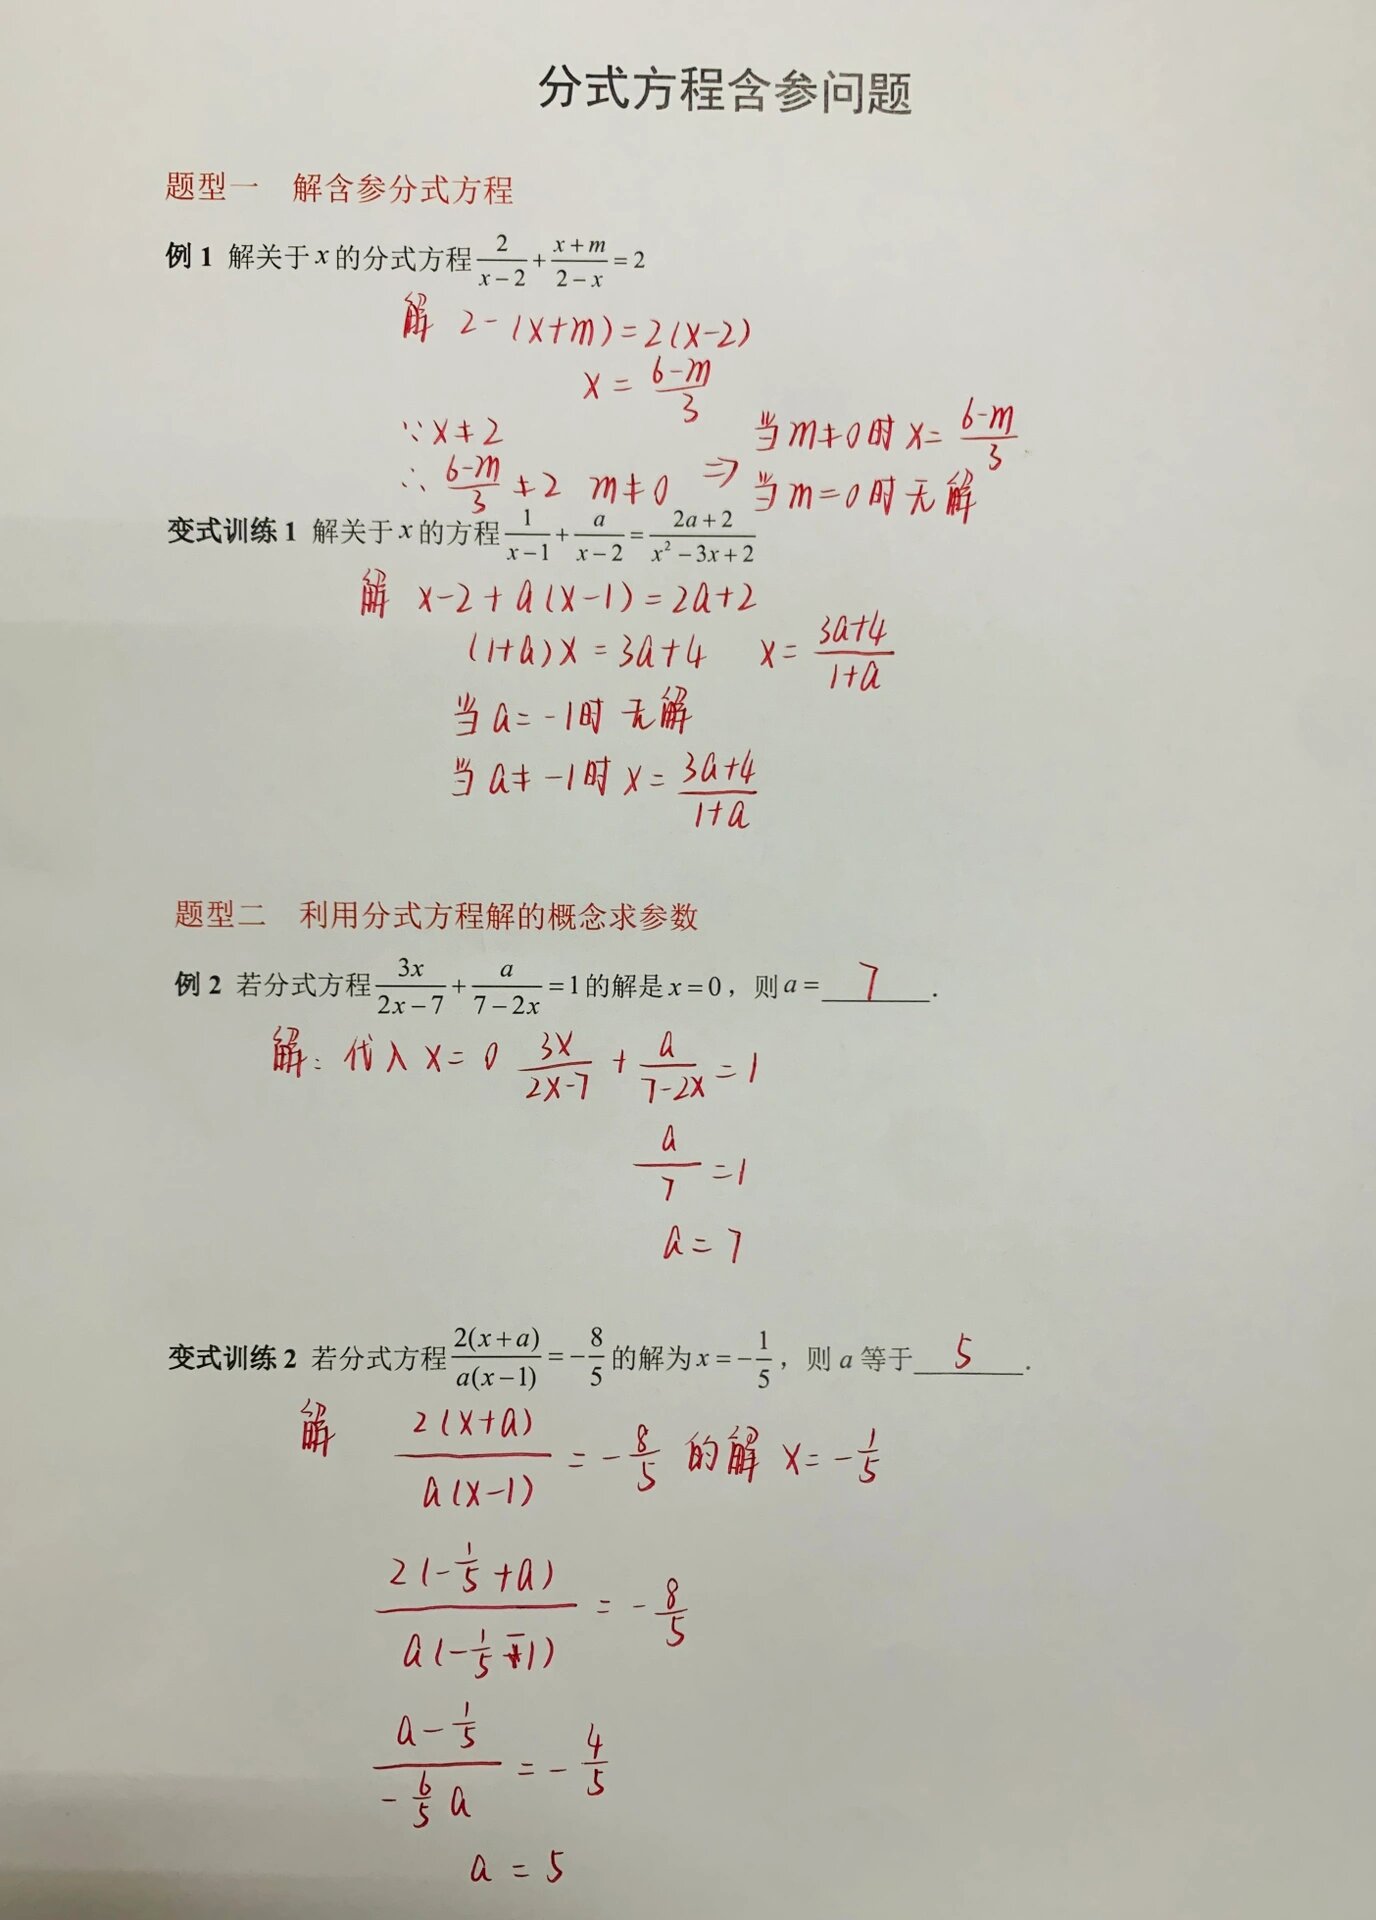 分式方程含参问题
题型一 解含参分式方程
例1 解关于x的分式方程 2/(x-2) + (x+m)/(2-x) = 2
解 2-(x+m)=2(x-2)
x = (6-m)/3
∵x≠2
∴ (6-m)/3 ≠2 m≠0 ⇒ 当m≠0时 x= (6-m)/3
当m=0时无解
变式训练1 解关于x的方程 1/(x-1) + a/(x-2) = (2a+2)/(x²-3x+2)
解 x-2+a(x-1)=2a+2
(1+a)x=3a+4 x= (3a+4)/(1+a)
当a=-1时 无解
当a≠-1时 x= (3a+4)/(1+a)
题型二 利用分式方程解的概念求参数
例2 若分式方程 3x/(2x-7) + a/(7-2x) =1的解是x=0，则a= 7 .
解：代入x=0 3x/(2x-7) + a/(7-2x) =1
a/7 =1
a=7
变式训练2 若分式方程 2(x+a)/a(x-1) = -8/5 的解为x=-1/5，则a等于 5 .
解 2(x+a)/a(x-1) = -8/5 的解 x=-1/5
2(-1/5+a)/a(-1/5-1) = -8/5
(a-1/5)/(-6/5 a) = -4/5
a=5